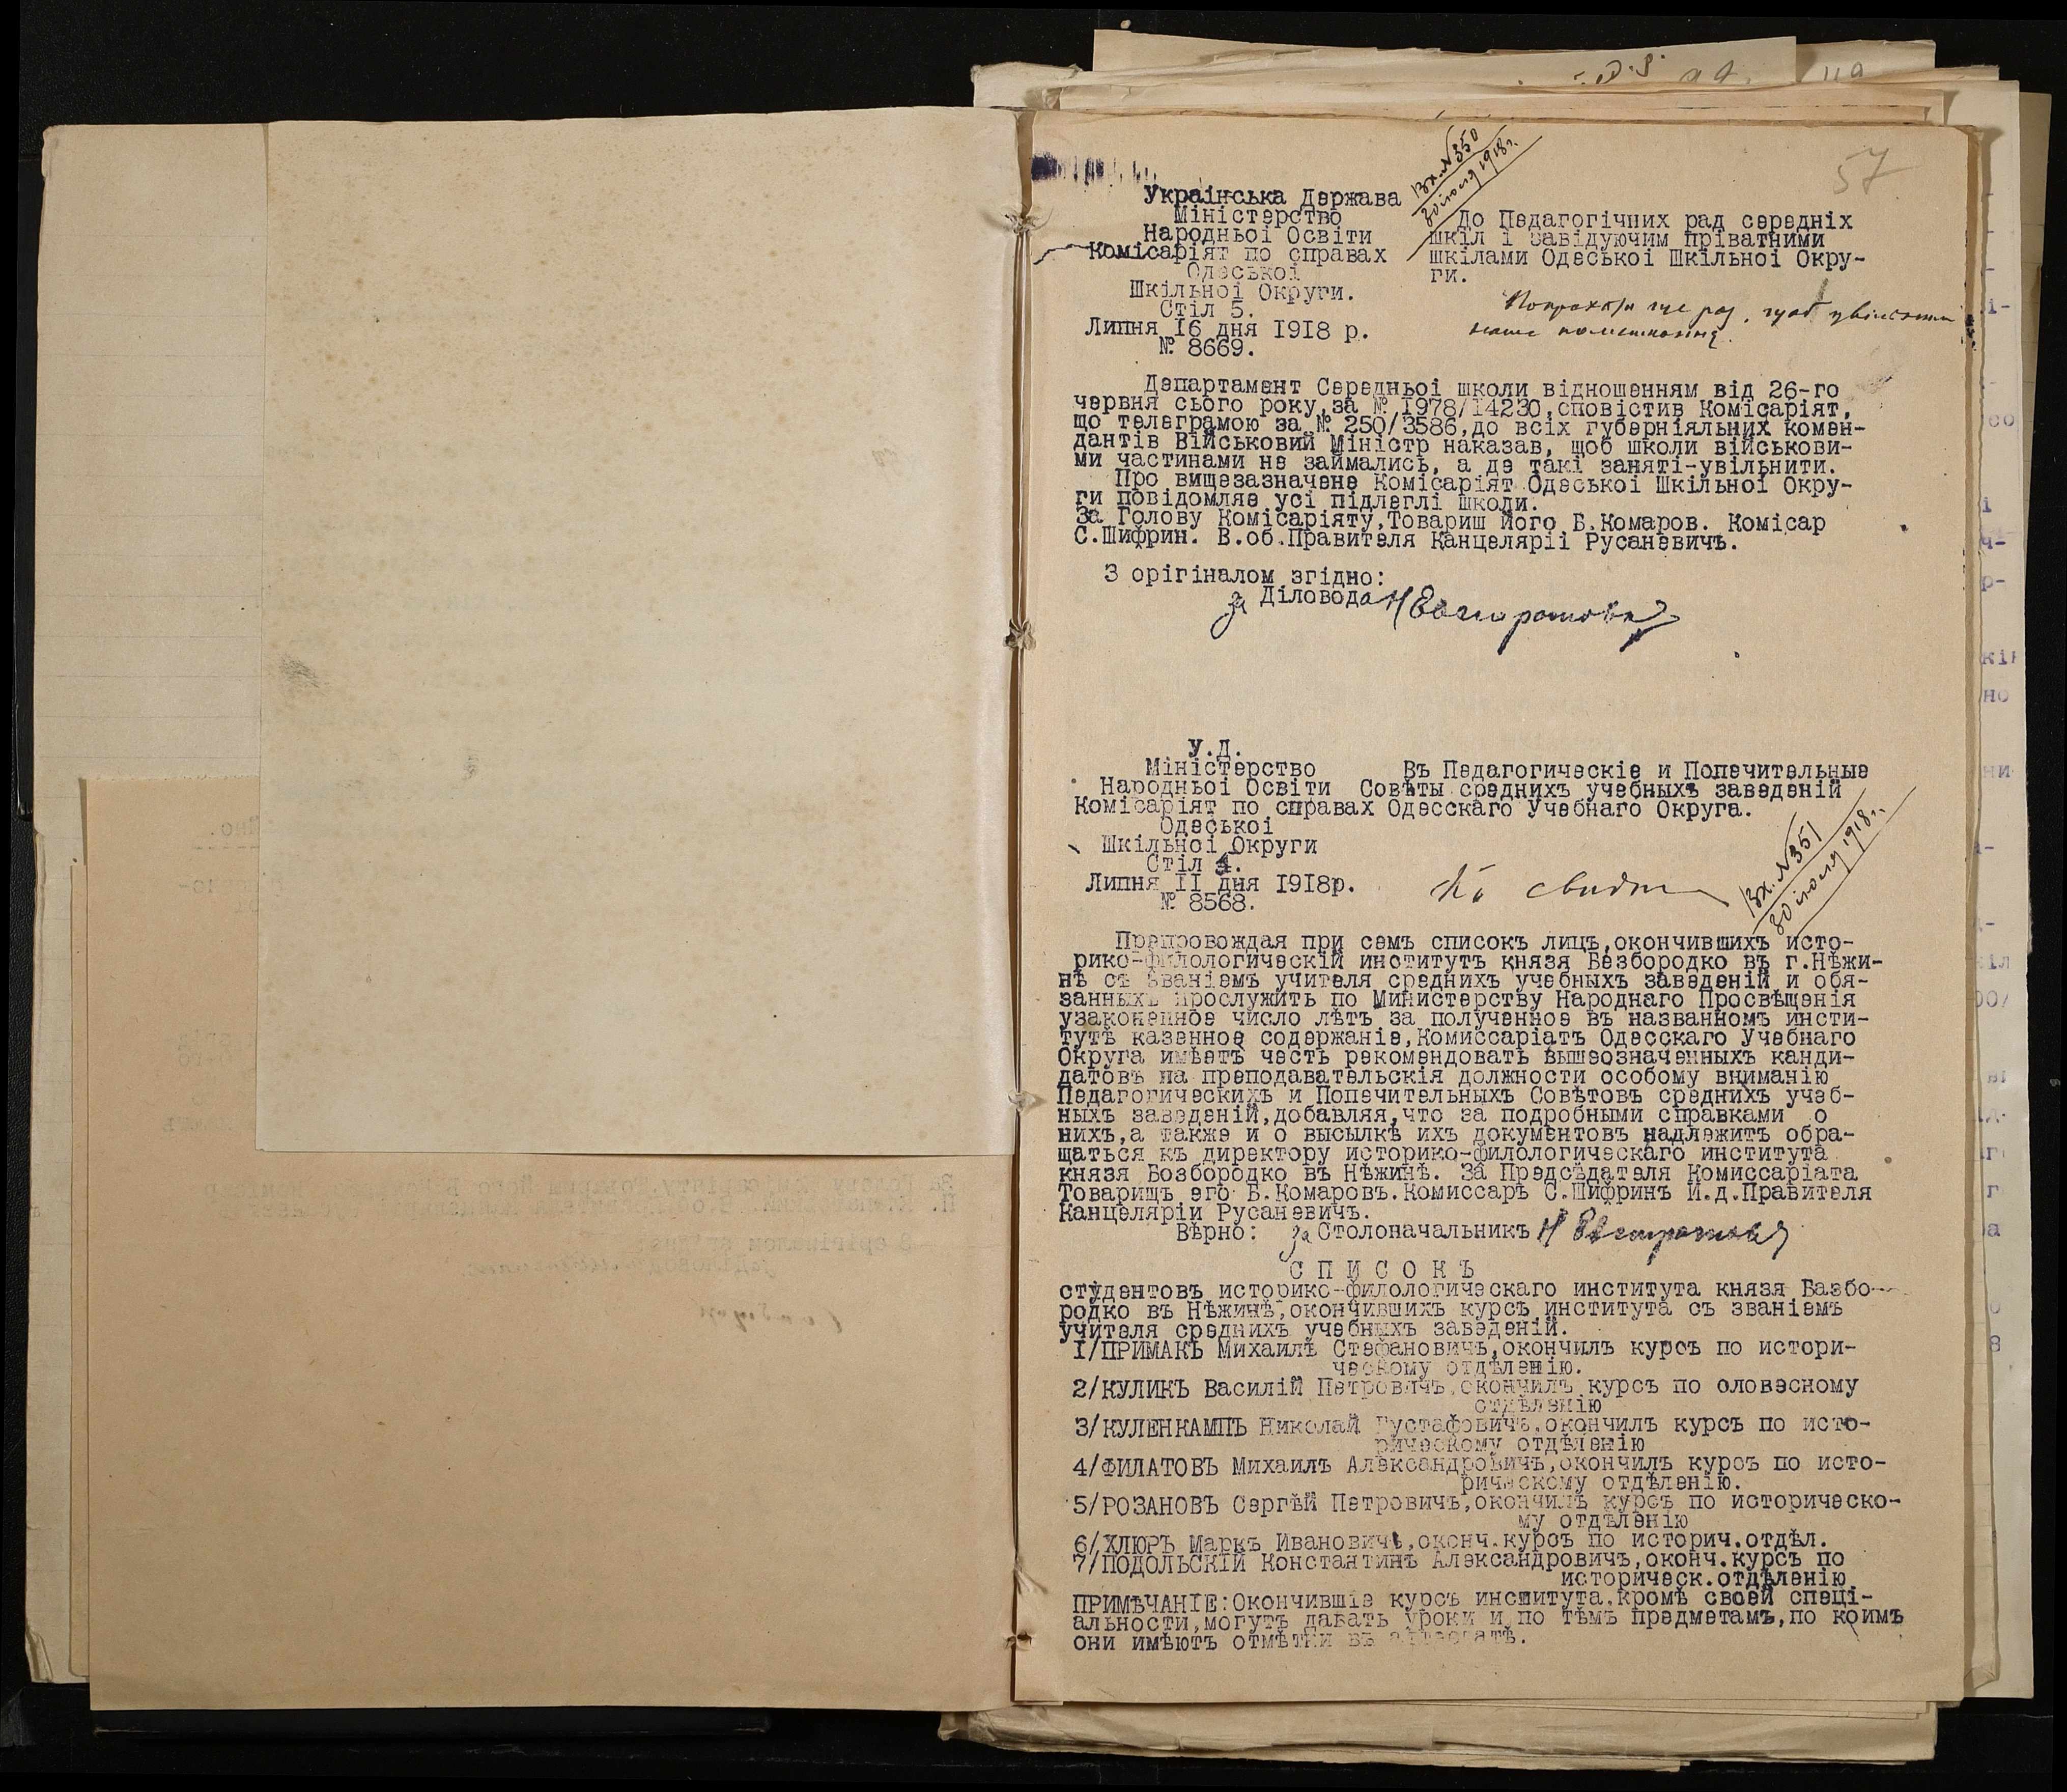 57
Вх. №350
30 іюля 1918 г.
Українська Держава
Міністерство
Народньоі Освіти
Комісаріят по справах
Одеськоі
Шкільноі Округи.
Стіл 5.
Липня 16 дня 1918 р.
№ 8669.
До Педагогічних рад середніх
шкіл і завідуючим пріватними
шкілами Одеськоі Шкільноі Окру-
ги.
ще раз, щоб
наше
Департамент Середньоі школи відношенням від 26-го
червня сього року,за № 1978/14230,сповістив Комісаріят,
що телеграмою за № 250/3586,до всіх губерніяльних комен-
дантів Військовий Міністр наказав, щоб школи військови-
ми частинами не займались, а де такі заняті-увільнити.
Про вищезазначене Комісаріят Одеськоі Шкільноі Окру-
ги повідомляе усі підлеглі школи.
За Голову Комісаріяту,Товариш його Б.Комаров. Комісар
С.Шифрин. В.об.Правителя Канцеляріі Русаневичъ.
З орігіналом згідно:
за Діловода
У.Д.
Міністерство
Народньоі Освіти
Комісаріят по справах
Одеськоі
Шкільноі Округи
Стіл 4.
Липня 11 дня 1918р.
№ 8568.
Въ Педагогическіе и Попечительные
Совѣты среднихъ учебныхъ заведеній
Одесскаго Учебнаго Округа.
Вх. №351
30 іюля 1918 г.
Препровождая при семъ списокъ лицъ,окончившихъ исто-
рико-филологическій институтъ князя Безбородко въ г.Нѣжи-
нѣ съ званіемъ учителя среднихъ учебныхъ заведеній и обя-
занныхъ прослужить по Министерству Народнаго Просвѣщенія
узаконенное число лѣтъ за полученное въ названномъ инсти-
тутѣ казенное содержаніе,Комиссаріатъ Одесскаго Учебнаго
Округа имѣетъ честь рекомендовать вышеозначенныхъ канди-
датовъ на преподавательскія должности особому вниманію
Педагогическихъ и Попечительныхъ Совѣтовъ среднихъ учеб-
ныхъ заведеній,добавляя,что за подробными справками о
нихъ,а также и о высылкѣ ихъ документовъ надлежитъ обра-
щаться къ директору историко-филологическаго института
князя Бозбородко въ Нѣжинѣ. За Предсѣдателя Комиссаріата
Товарищъ его Б.Комаровъ.Комиссаръ С.Шифринъ И.д.Правителя
Канцеляріи Русаневичъ.
Вѣрно: за Столоначальникъ
СПИСОКЪ
студентовъ историко-филологическаго института князя Безбо-
родко въ Нѣжинѣ,окончившихъ курсъ института съ званіемъ
учителя среднихъ учебныхъ заведеній.
1/ПРИМАКЪ Михаилъ Стефановичъ,окончилъ курсъ по истори-
ческому отдѣленію.
2/КУЛИКЪ Василій Петровичъ,окончилъ курсъ по словесному
отдѣленію
3/КУЛЕНКАМПЪ Николай Густафовичъ,окончилъ курсъ по исто-
рическому отдѣленію
4/ФИЛАТОВЪ Михаилъ Александровичъ,окончилъ курсъ по исто-
рическому отдѣленію.
5/РОЗАНОВЪ Сергѣй Петровичъ,окончилъ курсъ по историческо-
му отдѣленію
6/ХЛЮРЪ Маркъ Ивановичъ,оконч.курсъ по историч.отдѣл.
7/ПОДОЛЬСКІЙ Константинъ Александровичъ,оконч.курсъ по
историческ.отдѣленію
ПРИМѢЧАНІЕ:Окончившіе курсъ института,кромѣ своей спеці-
альности,могутъ давать уроки и по тѣмъ предметамъ,по коимъ
они имѣютъ отмѣтки въ аттестатѣ.